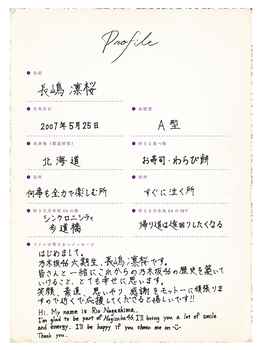 Profile
名前
長嶋 凛桜
生年月日
2007年5月25日
血液型
A 型
出身地（都道府県）
北 海 道
好きな食べ物
お寿司・わらび餅
長所
何事も全力で楽しむ所
短所
すぐに泣く所
好きな乃木坂46の曲
シンクロニシティ
歩道橋
好きな乃木坂46のMV
帰り道は遠回りしたくなる
ファンの皆さまへメッセージ
はじめまして。
乃木坂46 6期生、長嶋凛桜です。
皆さんと一緒にこれからの乃木坂46の歴史を築いて
いけること、とても幸せに思います。
笑顔、素直、思いやり、感謝をモットーに頑張りま
すので近くで応援してくださると嬉しいです!!
Hi. My name is Rio Nagashima.
I'm glad to be part of Nogizaka46, I'll bring you a lot of smile
and energy. I'll be happy if you cheer me on
Thank you.